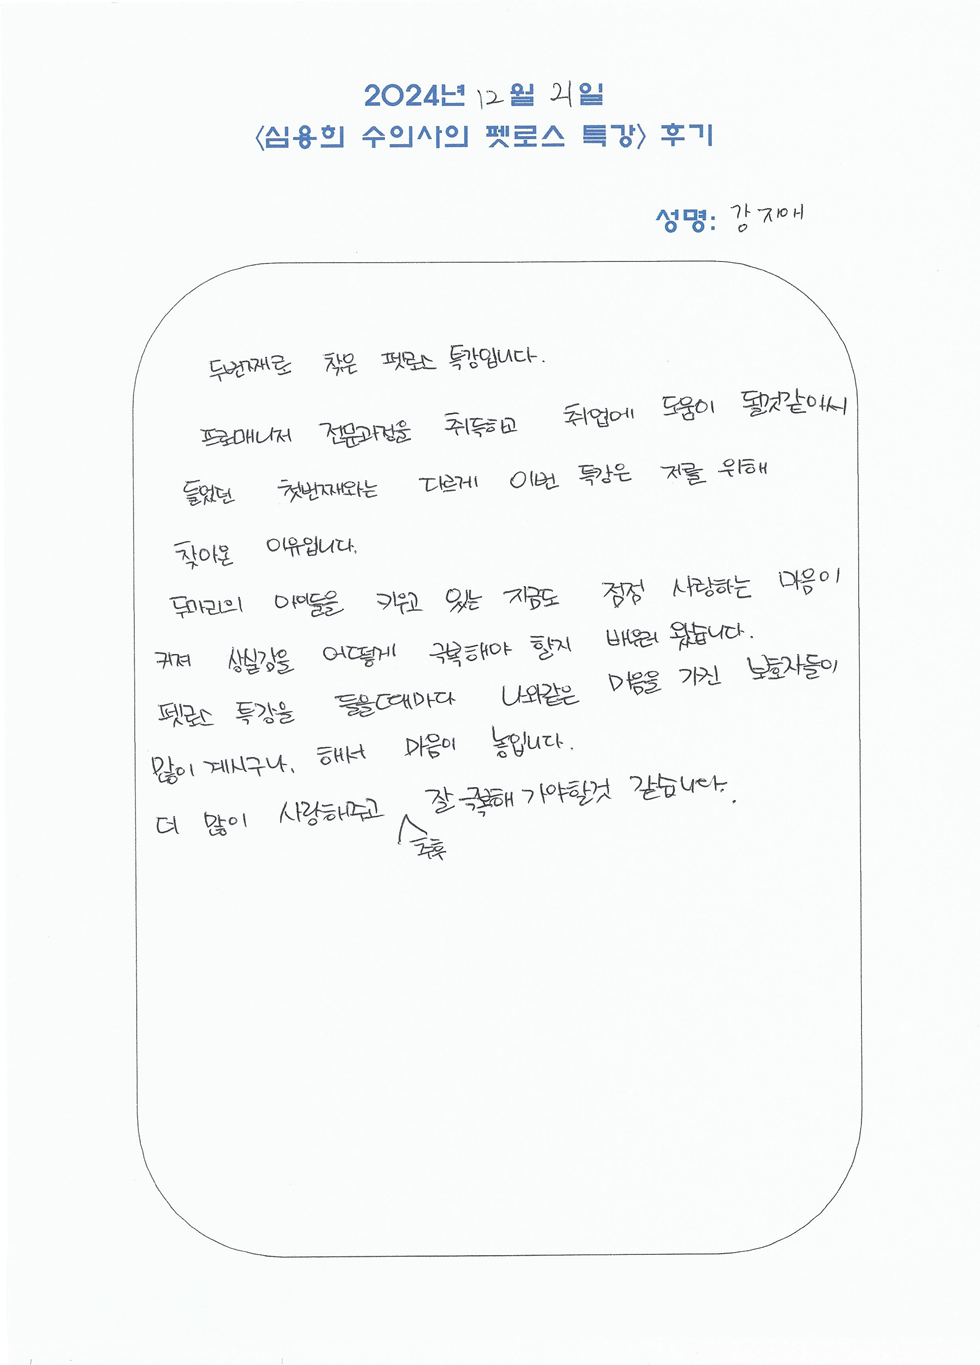 2024년 12월 21일
<심용희 수의사의 펫로스 특강> 후기
성명: 강지애
두번째로 찾은 펫로스 특강입니다.
프로매니저 전문과정을 취득하고 취업에 도움이 될것같아서
들었던 첫번째와는 다르게 이번 특강은 저를 위해
찾아온 이유입니다.
두마리의 아이들을 키우고 있는 지금도 점점 사랑하는 마음이
커져 상실감을 어떻게 극복해야 할지 배우러 왔습니다.
펫로스 특강을 들을때마다 나와같은 마음을 가진 보호자들이
많이 계시구나, 해서 마음이 놓입니다.
더 많이 사랑해주고 추후 잘 극복해 가야할것 같습니다.